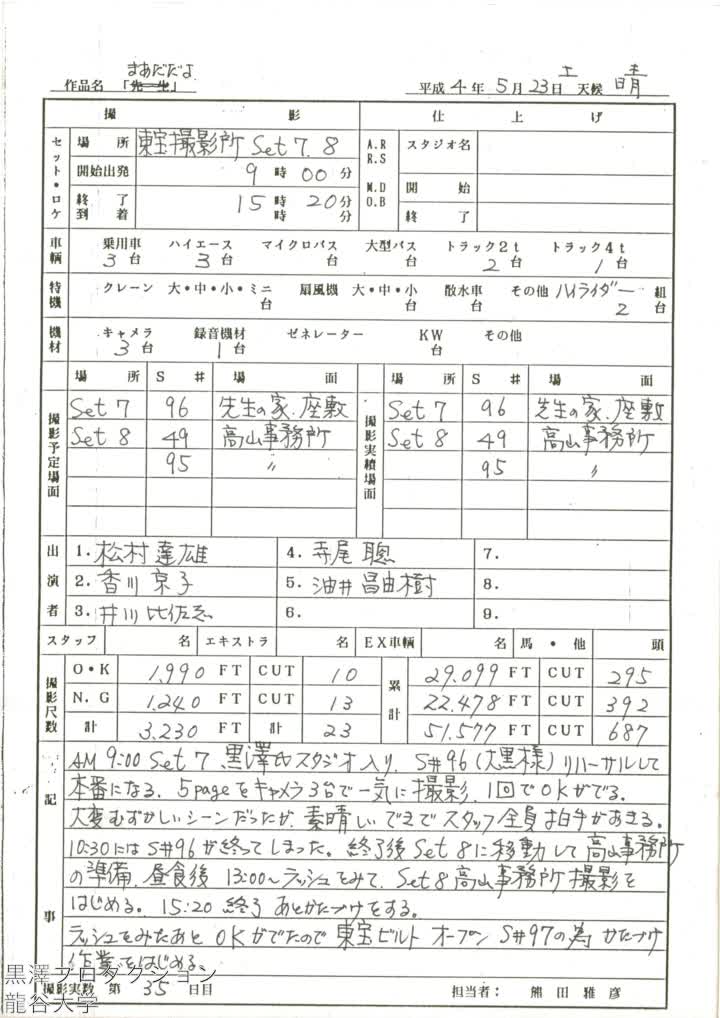 まあだだよ
作品名 「先生」 平成4年5月23日 土 天候 晴
撮影 仕上げ
セット・ロケ 場所 東宝撮影所 Set 7. 8 A.R R.S スタジオ名
開始出発 9時00分
終了到着 15時20分 時分 M.D O.B 開始
終了
車輌 乗用車 3台 ハイエース 3台 マイクロバス 台 大型バス 台 トラック2t 2台 トラック4t 1台
特機 クレーン 大・中・小・ミニ 台 扇風機 大・中・小 台 散水車 台 その他 ハイライダー 2 組台
機材 キャメラ 3台 録音機材 1台 ゼネレーター KW 台 その他
場所 S# 場面 場所 S# 場面
撮影予定場面 Set 7 96 先生の家.座敷 撮影実績場面 Set 7 96 先生の家.座敷
Set 8 49 高山事務所 Set 8 49 高山事務所
95 〃 95 〃
出演者 1. 松村達雄 4. 寺尾聰 7.
2. 香川京子 5. 油井昌由樹 8.
3. 井川比佐志 6. 9.
スタッフ 名 エキストラ 名 EX車輌 名 馬・他 頭
撮影尺数 O・K 1,990 FT CUT 10 累計 29.099 FT CUT 295
N.G 1.240 FT CUT 13 22.478 FT CUT 392
計 3.230 FT 計 23 51.577 FT CUT 687
記事
AM 9:00 Set 7 黒澤氏スタジオ入り. S#96 (大黒様) リハーサルして
本番になる. 5pageをキャメラ3台で一気に撮影. 1回でOKがでる.
大変むずかしいシーンだったが. 素晴しいできでスタッフ全員拍手がおきる.
10:30にはS#96が終ってしまった。終了後Set 8に移動して高山事務所
の準備. 昼食後 13:00〜ラッシュをみて. Set 8 高山事務所撮影を
はじめる. 15:20 終了 あとかたづけをする.
ラッシュをみたあと OKがでたので 東宝ビルト オープン S#97の為 かたづけ
作業をはじめる.
撮影実数 第35日目 担当者: 熊田雅彦
黒澤プロダクション
龍谷大学